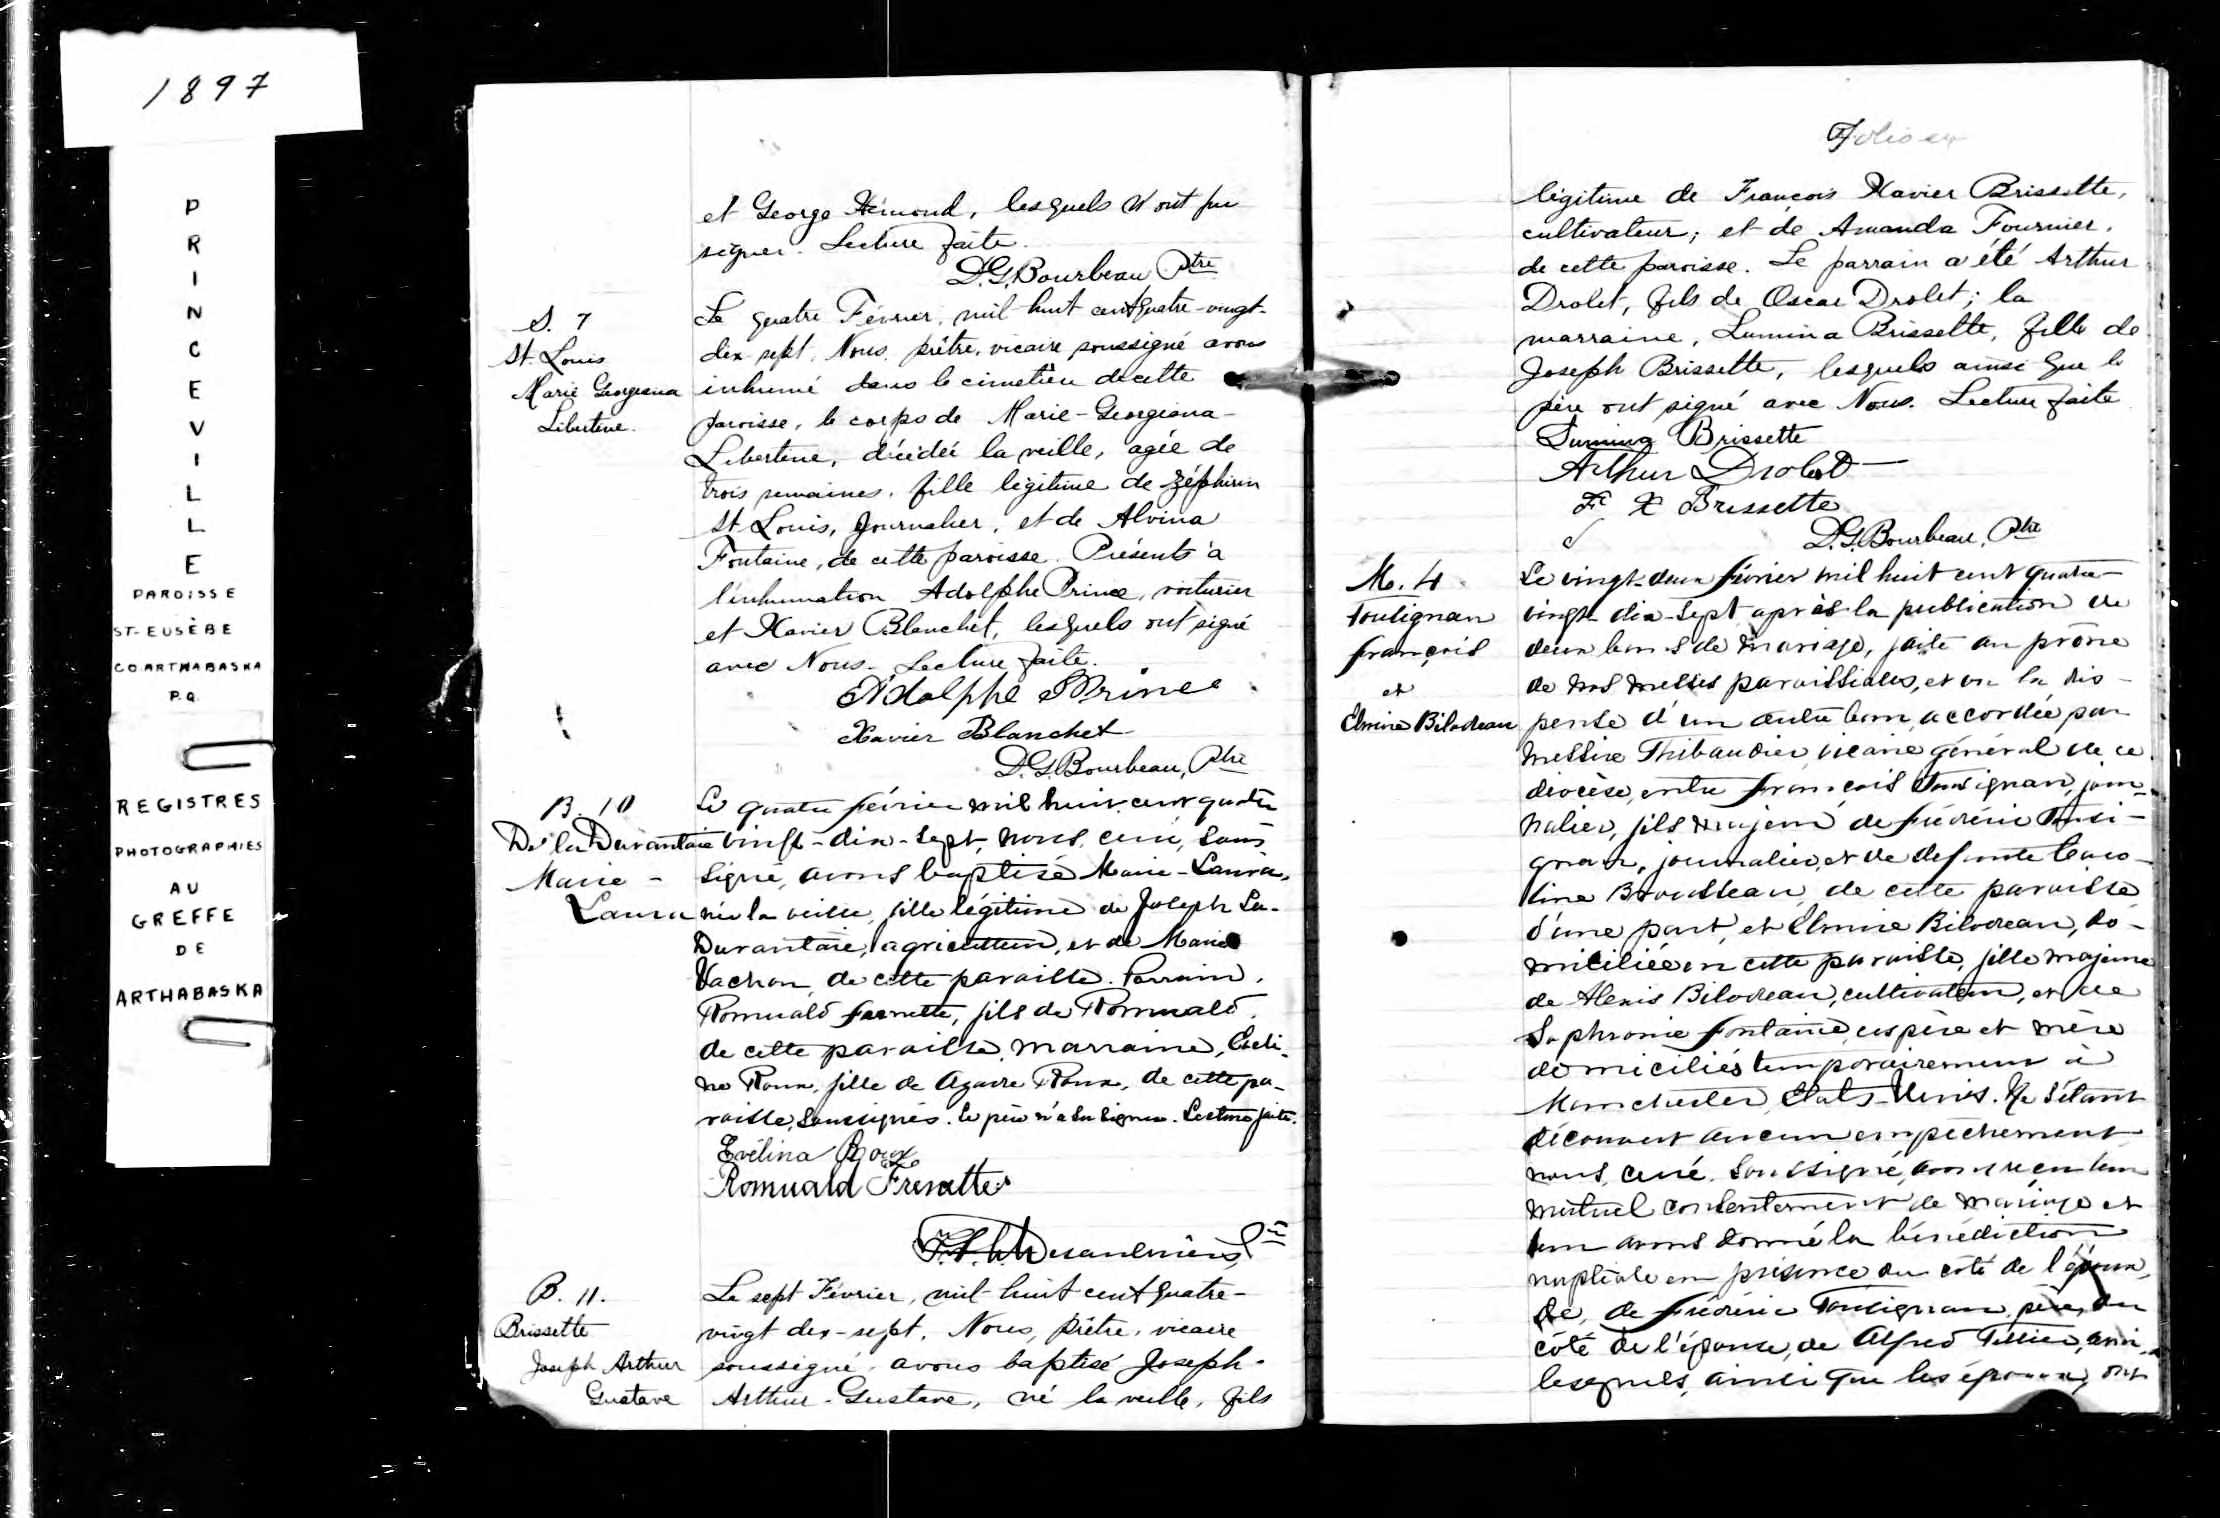 1897
PRINCEVILLE
PAROISSE
ST-EUSÈBE
CO ARTHABASKA
P.Q.
REGISTRES
PHOTOGRAPHIES
AU
GREFFE
DE
ARTHABASKA
et George Hémond, lesquels n'ont pu
signer. Lecture faite.
D.G. Bourbeau Ptre
S. 7
St. Louis
Marie Georgiana
Libertine.
Le quatre Février, mil huit cent quatre-vingt-
dix sept, Nous, prêtre, vicaire soussigné avons
inhumé dans le cimetière de cette
paroisse, le corps de Marie-Georgiana-
Libertine, décédée la veille, agée de
trois semaines, fille légitime de Zéphirin
St. Louis, journalier, et de Alvina
Fontaine, de cette paroisse. Présents à
l'inhumation Adolphe Prince, voiturier
et Xavier Blanchet, lesquels ont signé
avec Nous. Lecture faite.
Adolphe Prince
Xavier Blanchet
D.G. Bourbeau, Ptre
B. 10
De la Durantaie
Marie-
Laura
Le quatre février mil huit cent quatre
vingt-dix-sept, nous, curé, sous
signé, avons baptisé Marie-Laura,
née la veille, fille légitime de Joseph La-
Durantaie, agriculteur, et de Marie
Vachon, de cette paroisse. Parrain,
Romuald frenette, fils de Romuald,
de cette paroisse, marraine, Eveli-
na Roux, fille de Roux, de cette pa-
roisse, soussignés. Le père n'a su signer. Lecture faite.
Evélina Roux
Romuald Frenette
Desaulniers, Ptre
B. 11.
Brissette
Joseph Arthur
Gustave
Le sept Février, mil huit cent quatre-
vingt dix-sept, Nous, prêtre, vicaire
soussigné, avons baptisé Joseph-
Arthur-Gustave, né la veille, fils
Folio
légitime de François Xavier Brissette,
cultivateur; et de Amanda Fournier,
de cette paroisse. Le parrain a été Arthur
Drolet, fils de Oscar Drolet; la
marraine, Lumina Brissette, fille de
Joseph Brissette, lesquels ainsi que le
père ont signé avec Nous. Lecture faite
Lumina Brissette
Arthur Drolet
F X Brissette
D.G. Bourbeau, Ptre
M. 4
Tousignan
françois
et
Elmire Bilodeau
Le vingt-deux février mil huit cent quatre-
vingt-dix-sept après la publication de
deux bans de mariage, faite au prône
de nos messes paroissiales, et vu la dis-
pense d'un autre ban, accordée par
messire Thibaudier, vicaire général de ce
diocèse, entre françois Tousignan, jour-
nalier, fils majeur de frédéric Tousi-
gnan, journalier, et de defunte Caro-
line Brousseau, de cette paroisse
d'une part, et Elmire Bilodeau, do-
miciliée en cette paroisse, fille majeure
de Alexis Bilodeau, cultivateur, et de
Sophronie fontaine, ces père et mère
domiciliés temporairement à
Manchester, Etats-Unis. Ne s'étant
découvert aucun empêchement
nous, curé, soussigné, avons reçu leur
mutuel consentement de mariage et
leur avons donné la bénédiction
nuptiale en présence du coté de l'époux,
de frédéric Tousignan père, du
côté de l'épouse, de Alfred Tellier, ami,
lesquels, ainsi que les époux, ont